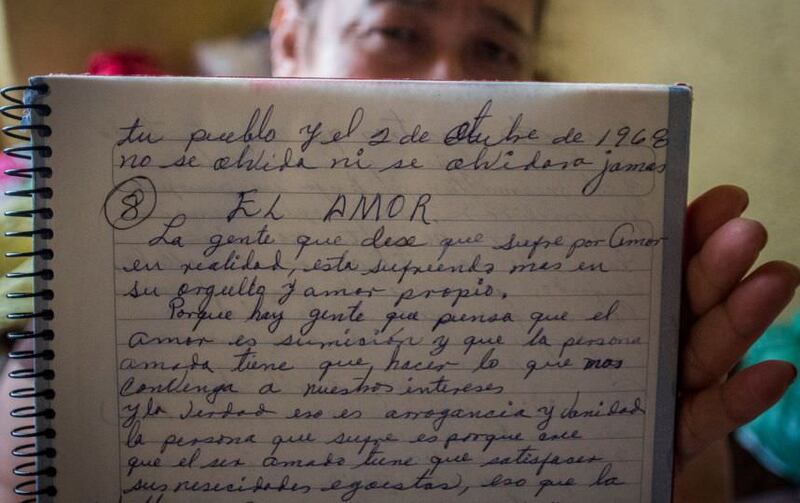 tu pueblo y el 2 de Octubre de 1968
no se olvida ni se olvidara jamas
8 EL AMOR
La gente que dese que sufre por Amor
en realidad, esta sufriendo mas en
su orgullo y amor propio.
Porque hay gente que piensa que el
amor es sumición y que la persona
amada tiene que, hacer lo que mas
Convenga a nuestros intereses
y la verdad eso es arrogancia y Vanidad
la persona que sufre es porque cree
que el ser amado tiene que satisfacer
sus nesecidades egoestas, eso que la